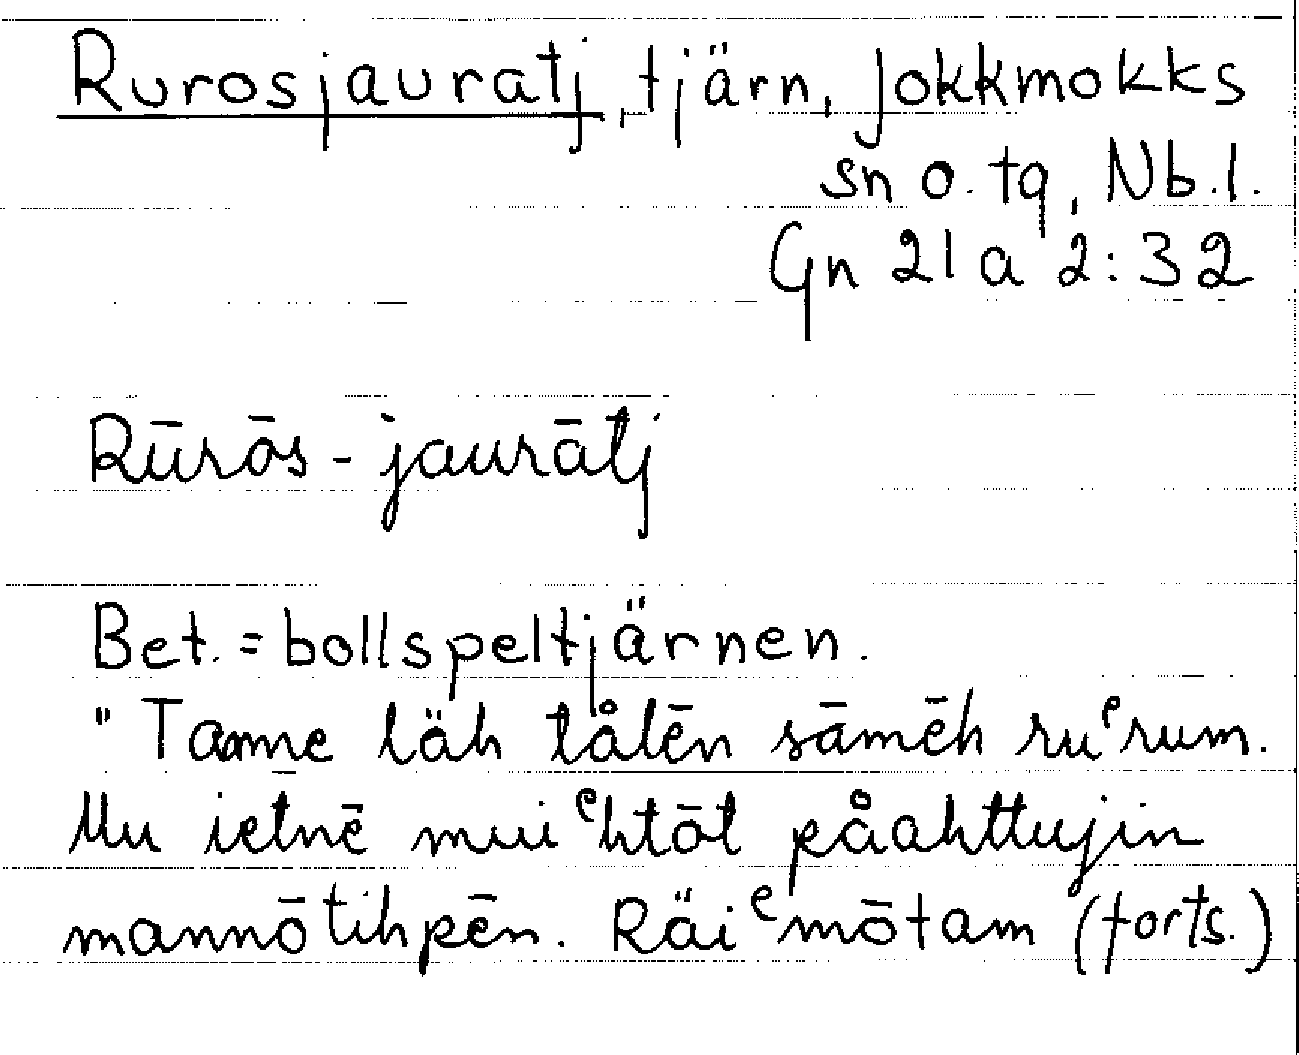 Rurosjauratj, tjärn, Jokkmokks
sn o. tg, Nb.l.
Gn 21 a 2:32
Rūrōs-jaurātj
Bet. = bollspeltjärnen.
"Tamme läh tålēn sāmēh ruᵉrum.
Mu ietnē muiᵉhtōt påahttujin
mannōtihpēn. Räiᵉmōtam (forts.)